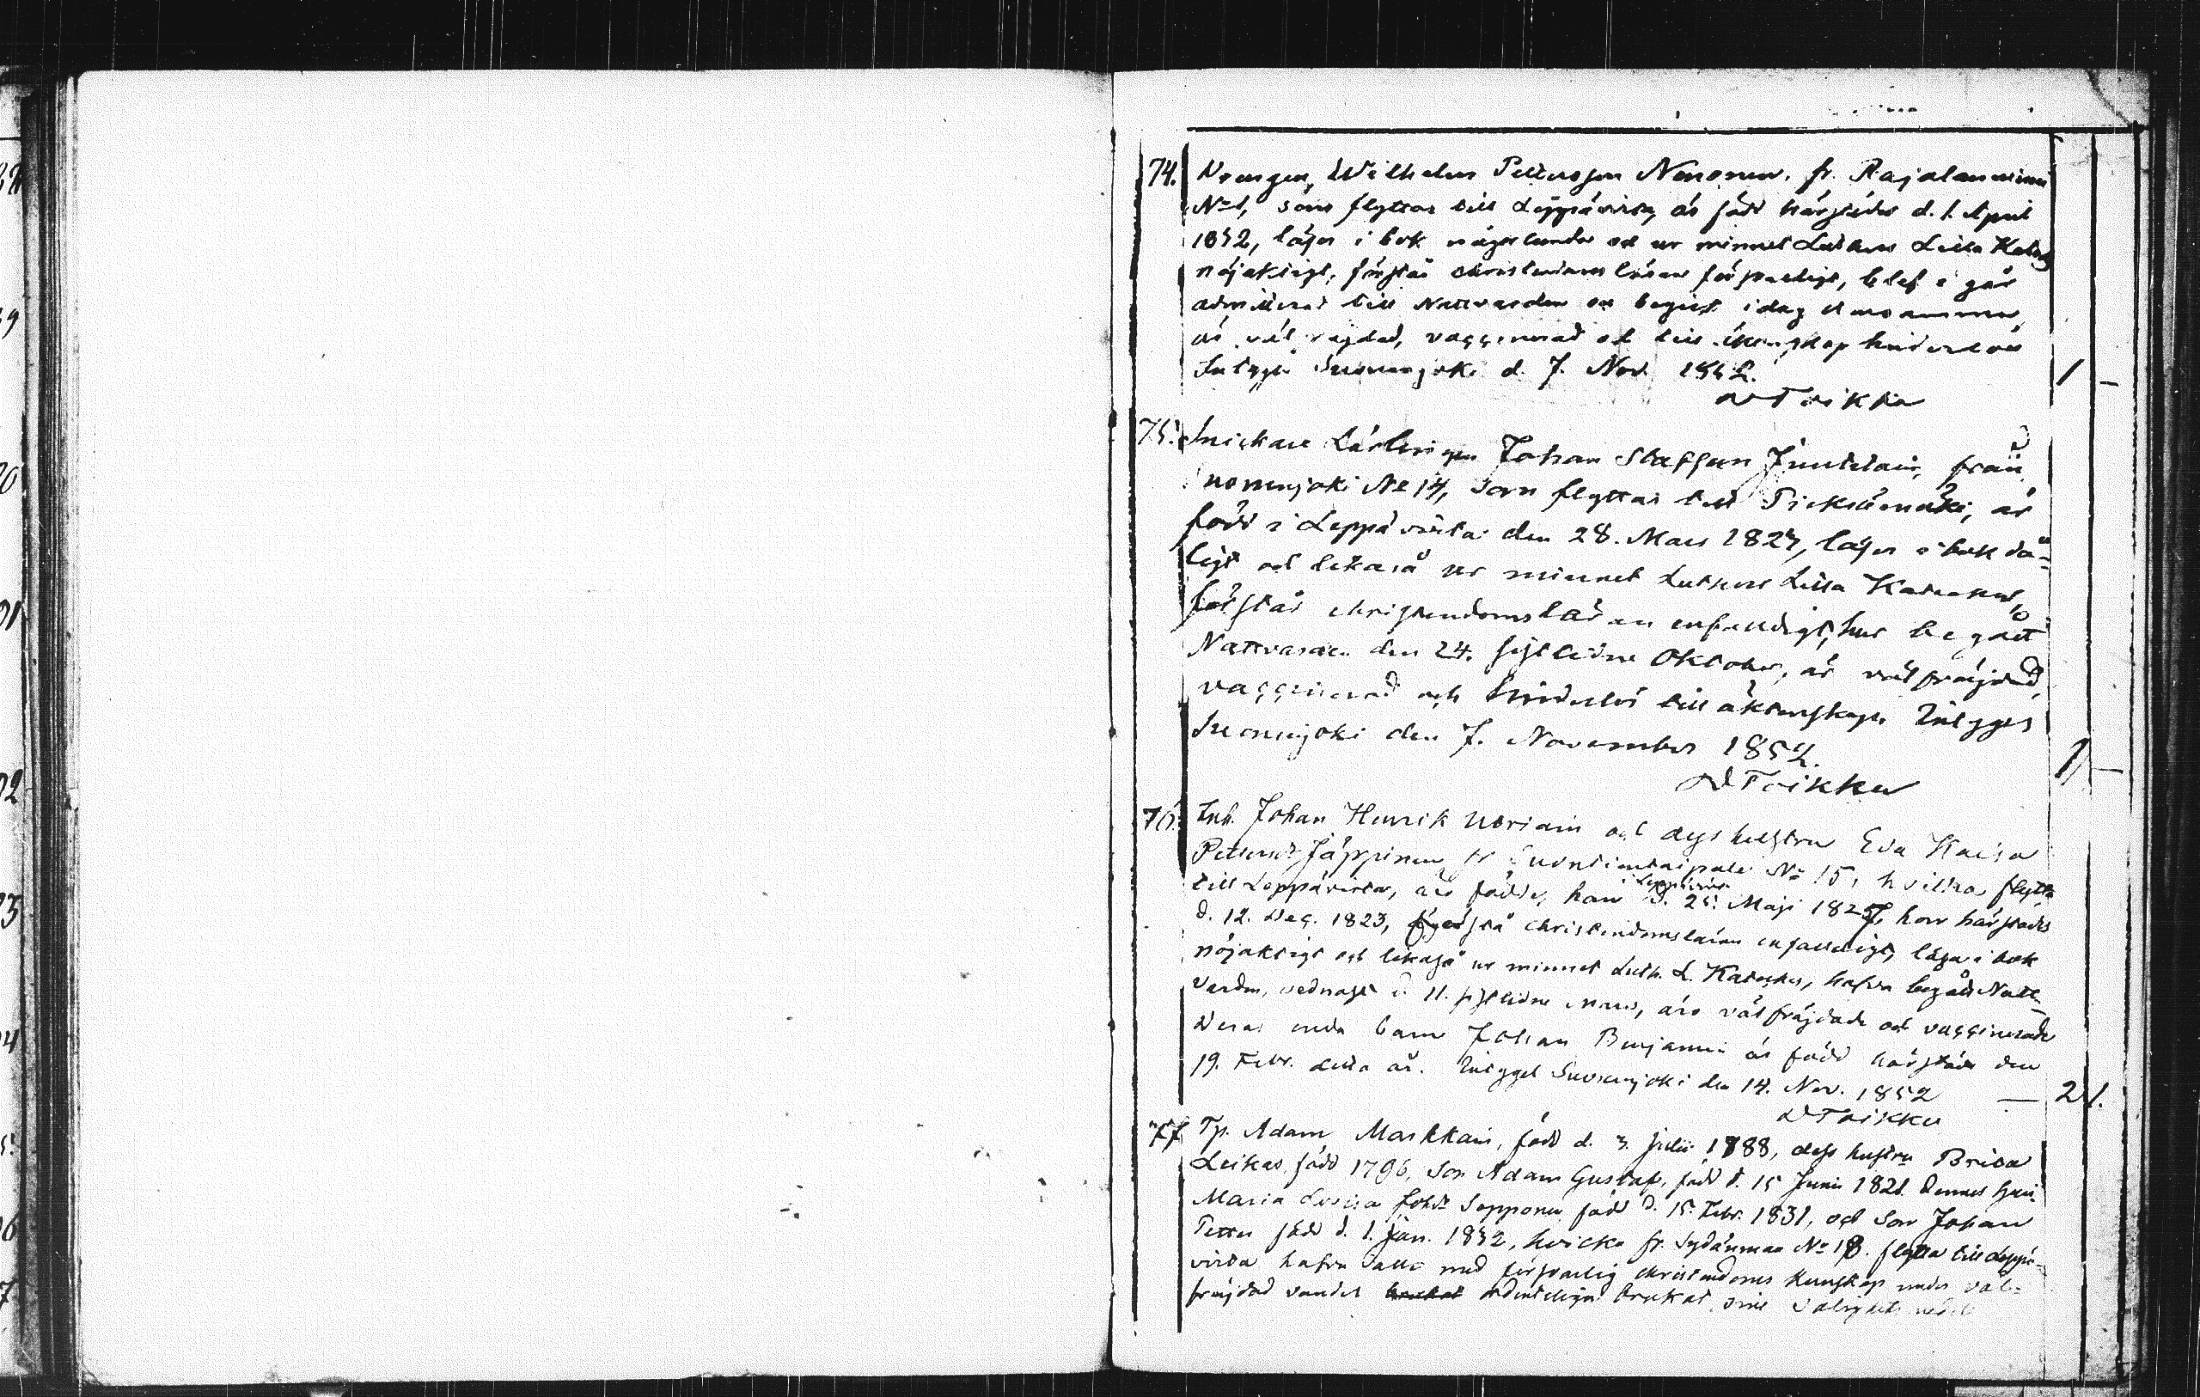 74. Drengen, Wilhelm Pettersson Nenonen, fr. Rajalanniemi
No 1, som flyttar till Leppävirta, är född härstädes d. 1. April
1832, läser i bok någorlunda och ur minnet Luthers Lilla Katech
nöjaktigt, förstår christendoms läran försvarligt, blef i går
admitterad till Nattvarden och begick i dag densamma,
är väl frejdad, vaccinerad och till äktenskap hinderlös
Intygar Suonenjoki d. 7. Nov. 1852.
Toikka
1 –
75. Snickare Lärlingen Johan Staffan Juutilain, från
Suonenjoki No 14, som flyttar till Pieksämäki, är
född i Leppävirta den 28. Mars 1827, läser i bok då-
ligt och likaså ur minnet Luthers Lilla Kateches,
förstår christendomsläran enfaldigt, har begått
Nattvarden den 24. sistlidne Oktober, är väl frejdad,
vaccinerad och hinderlös till äktenskap. Intygas
Suonenjoki den 7. November 1852.
Toikka
1 –
76. Inh. Johan Henrik och dess hustru Eva Kaisa
Pettersdr Jäppinen, fr Suontientaipale No 15, hvilka flytta
till Leppävirta, äro födde, han i Leppävirta d. 25. Maji 1827, hon härstädes
d. 12. Dec. 1823, förstå christendomsläran enfaldigt, läsa i bok
nöjaktigt och likaså ur minnet Luth. L. Kateches, hafva begått Natt-
varden, sednast d. 11. sistlidne Mars, äro väl frejdade och vaccinerade
Deras enda barn Johan Benjamin är född härstädes den
19. Febr. detta år. Intyget Suonenjoki den 14. Nov. 1852
Toikka
— 2 1.
77 Tp. Adam Markkain, född d. 3. Julii 1788, dess hustru Brita
Leikas, född 1796, Son Adam Gustaf, född d. 15 Junii 1821. Dennes hu
Maria Lovisa Johdr Sepponen född d. 15. Febr. 1831, och Son Johan
Petter född d. 1. Jan. 1852, hvilka fr. Sydänmaa No 18. flytta till Leppä-
virta hafva alla med försvarlig christendoms kunskap under väl-
frejdad vandel ordenteligen brukat sine salighets medel